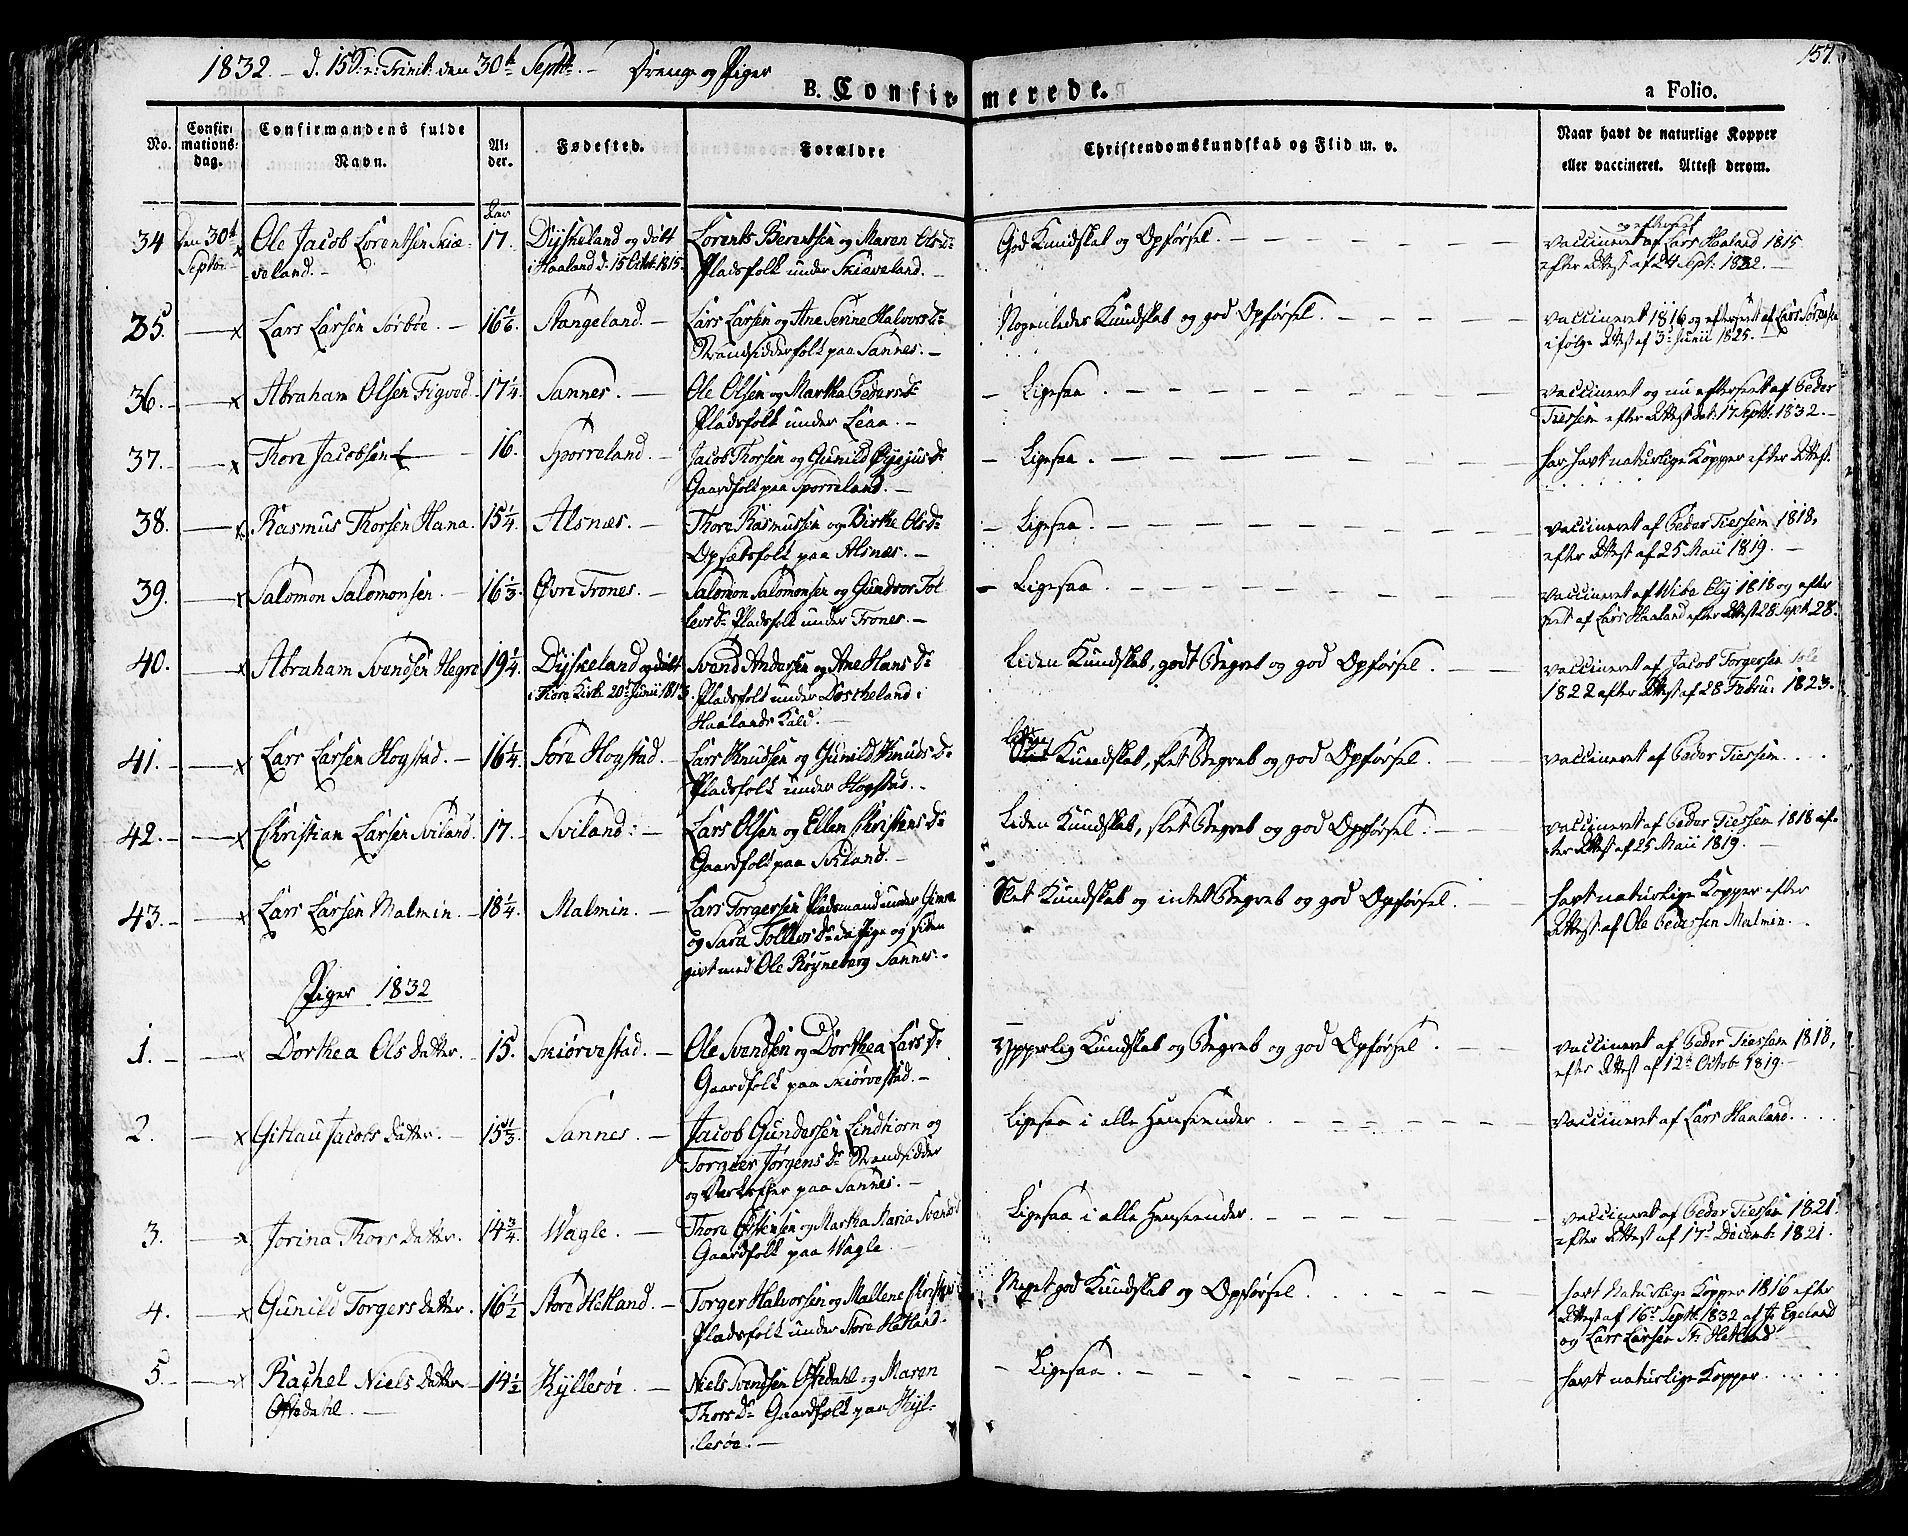 1832. – d. 15 S. e: Trinit: den 30te Septbr. – Drenge og Piger
157.
B. Confirmerede.
a Folio.
No.
Confirmationsdag.
Confirmandens fulde Navn.
Alder.
Fødested.
Forældre
Christendomskundskab og Flid m. v.
Naar havt de naturlige Kopper eller vaccineret. Attest derom.
34 den 30te Septbr – x Ole Jacob Lorentsen Skiæveland. – Aar 17. Dyskeland og døbt i Haaland d. 15 Octob 1815. Lorents Berentsen og Maren Olsdr Pladsfolk under Skiæveland. – God Kundskab og Opførsel. – vaccineret og efterseet af Lars Haaland 1815 efter Attest af 24 Sept: 1832. –
35. – x Lars Larsen Sørbøe. – 16 1/6. Stangeland. – Lars Larsen og Ane Serine Halvorsdr Strandsidderfolk paa Sannes. – Nogenledes Kundskab og god Opførsel. – vaccineret 1816 og efterseet af Lars ifølge Attest af 3 Junii 1825. –
36. – x Abraham Olsen Figved 17 1/4. Sannes. – Ole Olsen og Martha Pedersdr Pladsfolk under Leaa. – – Ligesaa. – vaccineret og nu efterseet af Peder Tiessem efter Attest dat: 17 Septb. 1832. –
37. – x Thore Jacobsen – 16. Sporreland. – Jacob Thorsen og Gunild Gaardfolk paa Sporreland. – – Ligesaa. – har havt naturlige Kopper efter Attest.
38. – x Rasmus Thorsen Hana. 15 1/4. Alsnæs. – Thore Rasmussen og Birthe Olsdr Opsætsfolk paa Alsnæs. – – Ligesaa. – vaccineret af Peder Tiessem 1818, efter Attest af 25 Maii 1819. –
39. – x Salomon Salomonsen. – 16 1/3. Øvre Trones. – Salomon Salomonsen og Gundvor Tollevsdr Pladsfolk under Trones. – – Ligesaa. – vaccineret af Wibe Ely 1818 og efterset af Lars Haaland efter Attest 28 Sept 28.
40. – x Abraham Svendsen Hegre 19 1/4. Dyskeland og døbt i Thore Kirke 20 Junii 1813. Svend Andersen og Ane Hansdr Pladsfolk under i Haalands Kald. – Liden Kundskab, godt Begreb og god Opførsel. – vaccineret af Jacob Torgersen Sole 1822 efter Attest af 28 Febru: 1823.
41. – x Lars Larsen Hogstad. – 16 1/4. Søre Hogstad. – Lars Knudsen og Gunild Knudsdr Pladsfolk under Hogstad. – Liden Kundskab, slet Begreb og god Opførsel. – vaccineret af Peder Tiessem. . . .
42. – x Christian Larsen Sviland. 17. – Sviland. – Lars Olsen og Ellen Christensdr Gaardfolk paa Sviland. – Liden Kundskab, slet Begreb og god Opførsel. – vaccineret af Peder Tiessem 1818 efter Attest af 25 Maii 1819. –
43. – x Lars Larsen Malmin. – 18 1/4. Malmin. – Lars Torgersen Pladsmand under og Sara Tollevsdr da Pige og siden givt med Ole Røyneberg Sannes. – Slet Kundskab og intet Begreb og god Opførsel. – havt naturlige Kopper efter Attest af Ole Pedersen Malmin. –
Piger 1832
1. – x Dorthea Olsdatter. 15. Skiørvestad. – Ole Svendsen og Dorthea Larsdr Gaardfolk paa Skiørvestad. – Ypperlig Kundskab og Begreb og god Opførsel. – vaccineret af Peder Tiessem 1818, efter Attest af 12te Octob: 1819. –
2. – x Githau Jacobsdatter. – 15 1/3. Sannes. – Jacob Gundersen Lindtiorn og Torgier Jørgensdr Strandsidder og Værtsher paa Sannes. – Ligesaa i alle Henseender. – vaccineret af Lars Haaland. . . .
3. – x Jorina Thorsdatter. 14 3/4. Wagle. – Thore Østensen og Martha Maria Svendsd Gaardfolk paa Wagle. – Ligesaa i alle Henseender. – vaccineret af Peder Tiessem 1821. efter Attest af 17 Decemb: 1821.
4. – x Gunild Torgersdatter. 16 1/2 Store Hetland. – Torger Halvorsen og Mallene Pladsfolk under Store Hetland. Meget god Kundskab og Opførsel. . . . havt Naturlige Kopper 1816 efter Attest af 16 Septb. 1832 af J. Egeland og Lars Larsen St. Hetland
5. – x Rachel Nielsdatter Østedahl. – 14 1/2 Kyllesøe. – Niels Svendsen Østedahl og Maren Thorsdr Gaardfolk paa Kyllesøe. – – Ligesaa. – havt naturlige Kopper. . . .